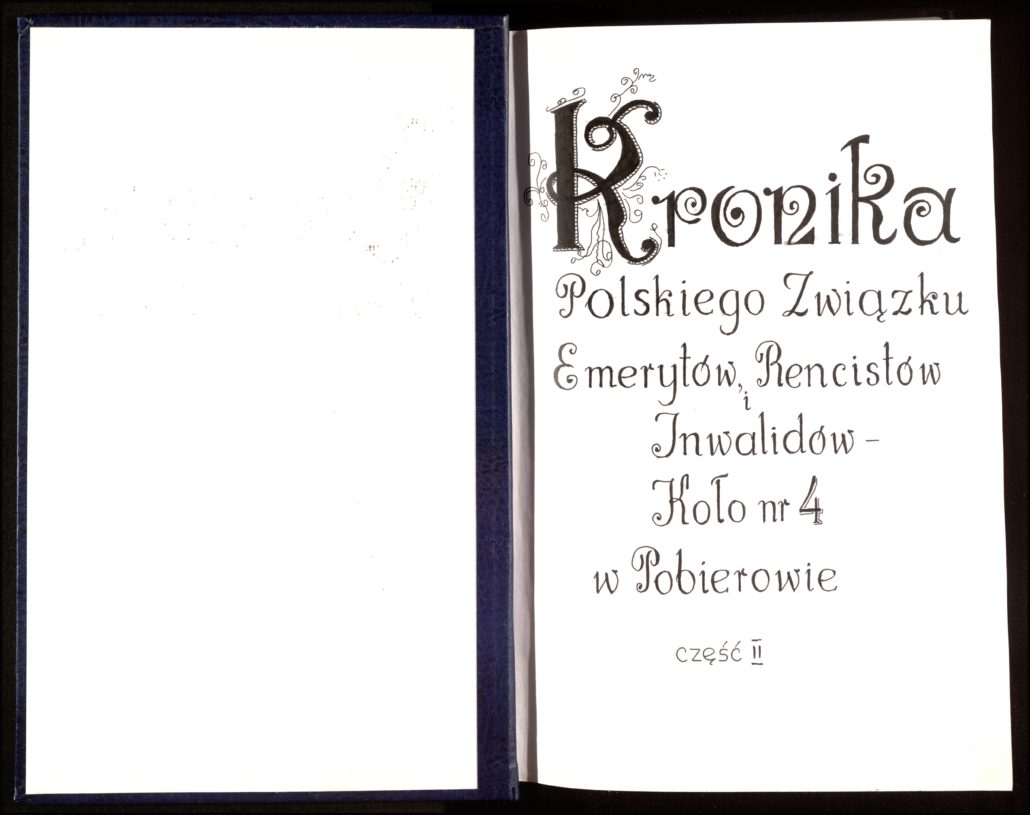 Kronika
Polskiego Związku
Emerytów, Rencistów
i
Inwalidów -
Koło nr 4
w Pobierowie
część II